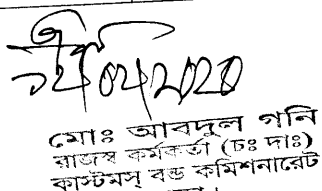 মোঃ আবদুল গনি
রাজস্ব কর্মকর্তা (চঃ দাঃ)
কাস্টমস্ বন্ড কমিশনারেট